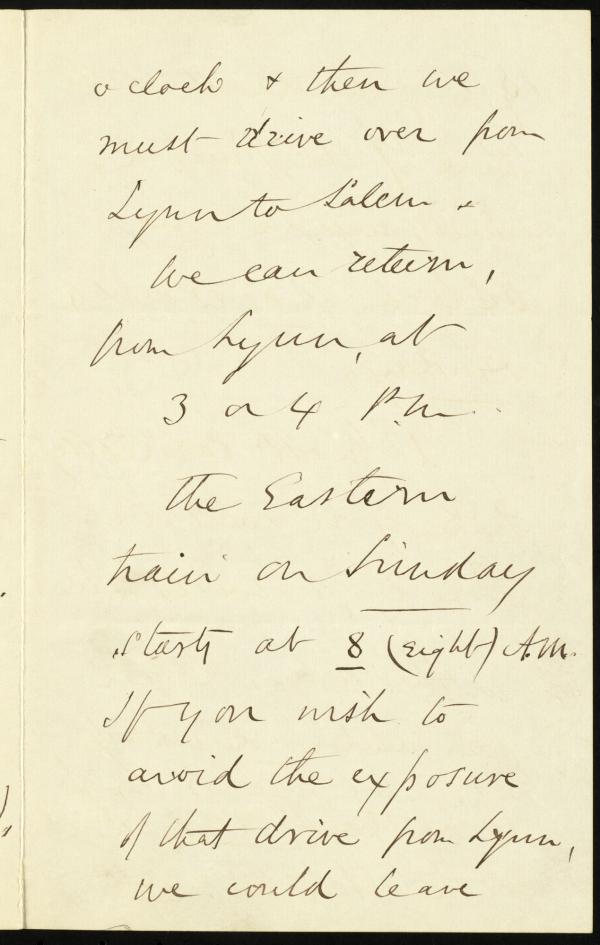 o'clock & then we
must drive over from
Lynn to Salem &
we can return,
from Lynn, at
3 or 4 P.M.
the Eastern
train on Sunday
starts at 8 (eight) A.M.
If you wish to
avoid the exposure
of that drive from Lynn,
we could leave